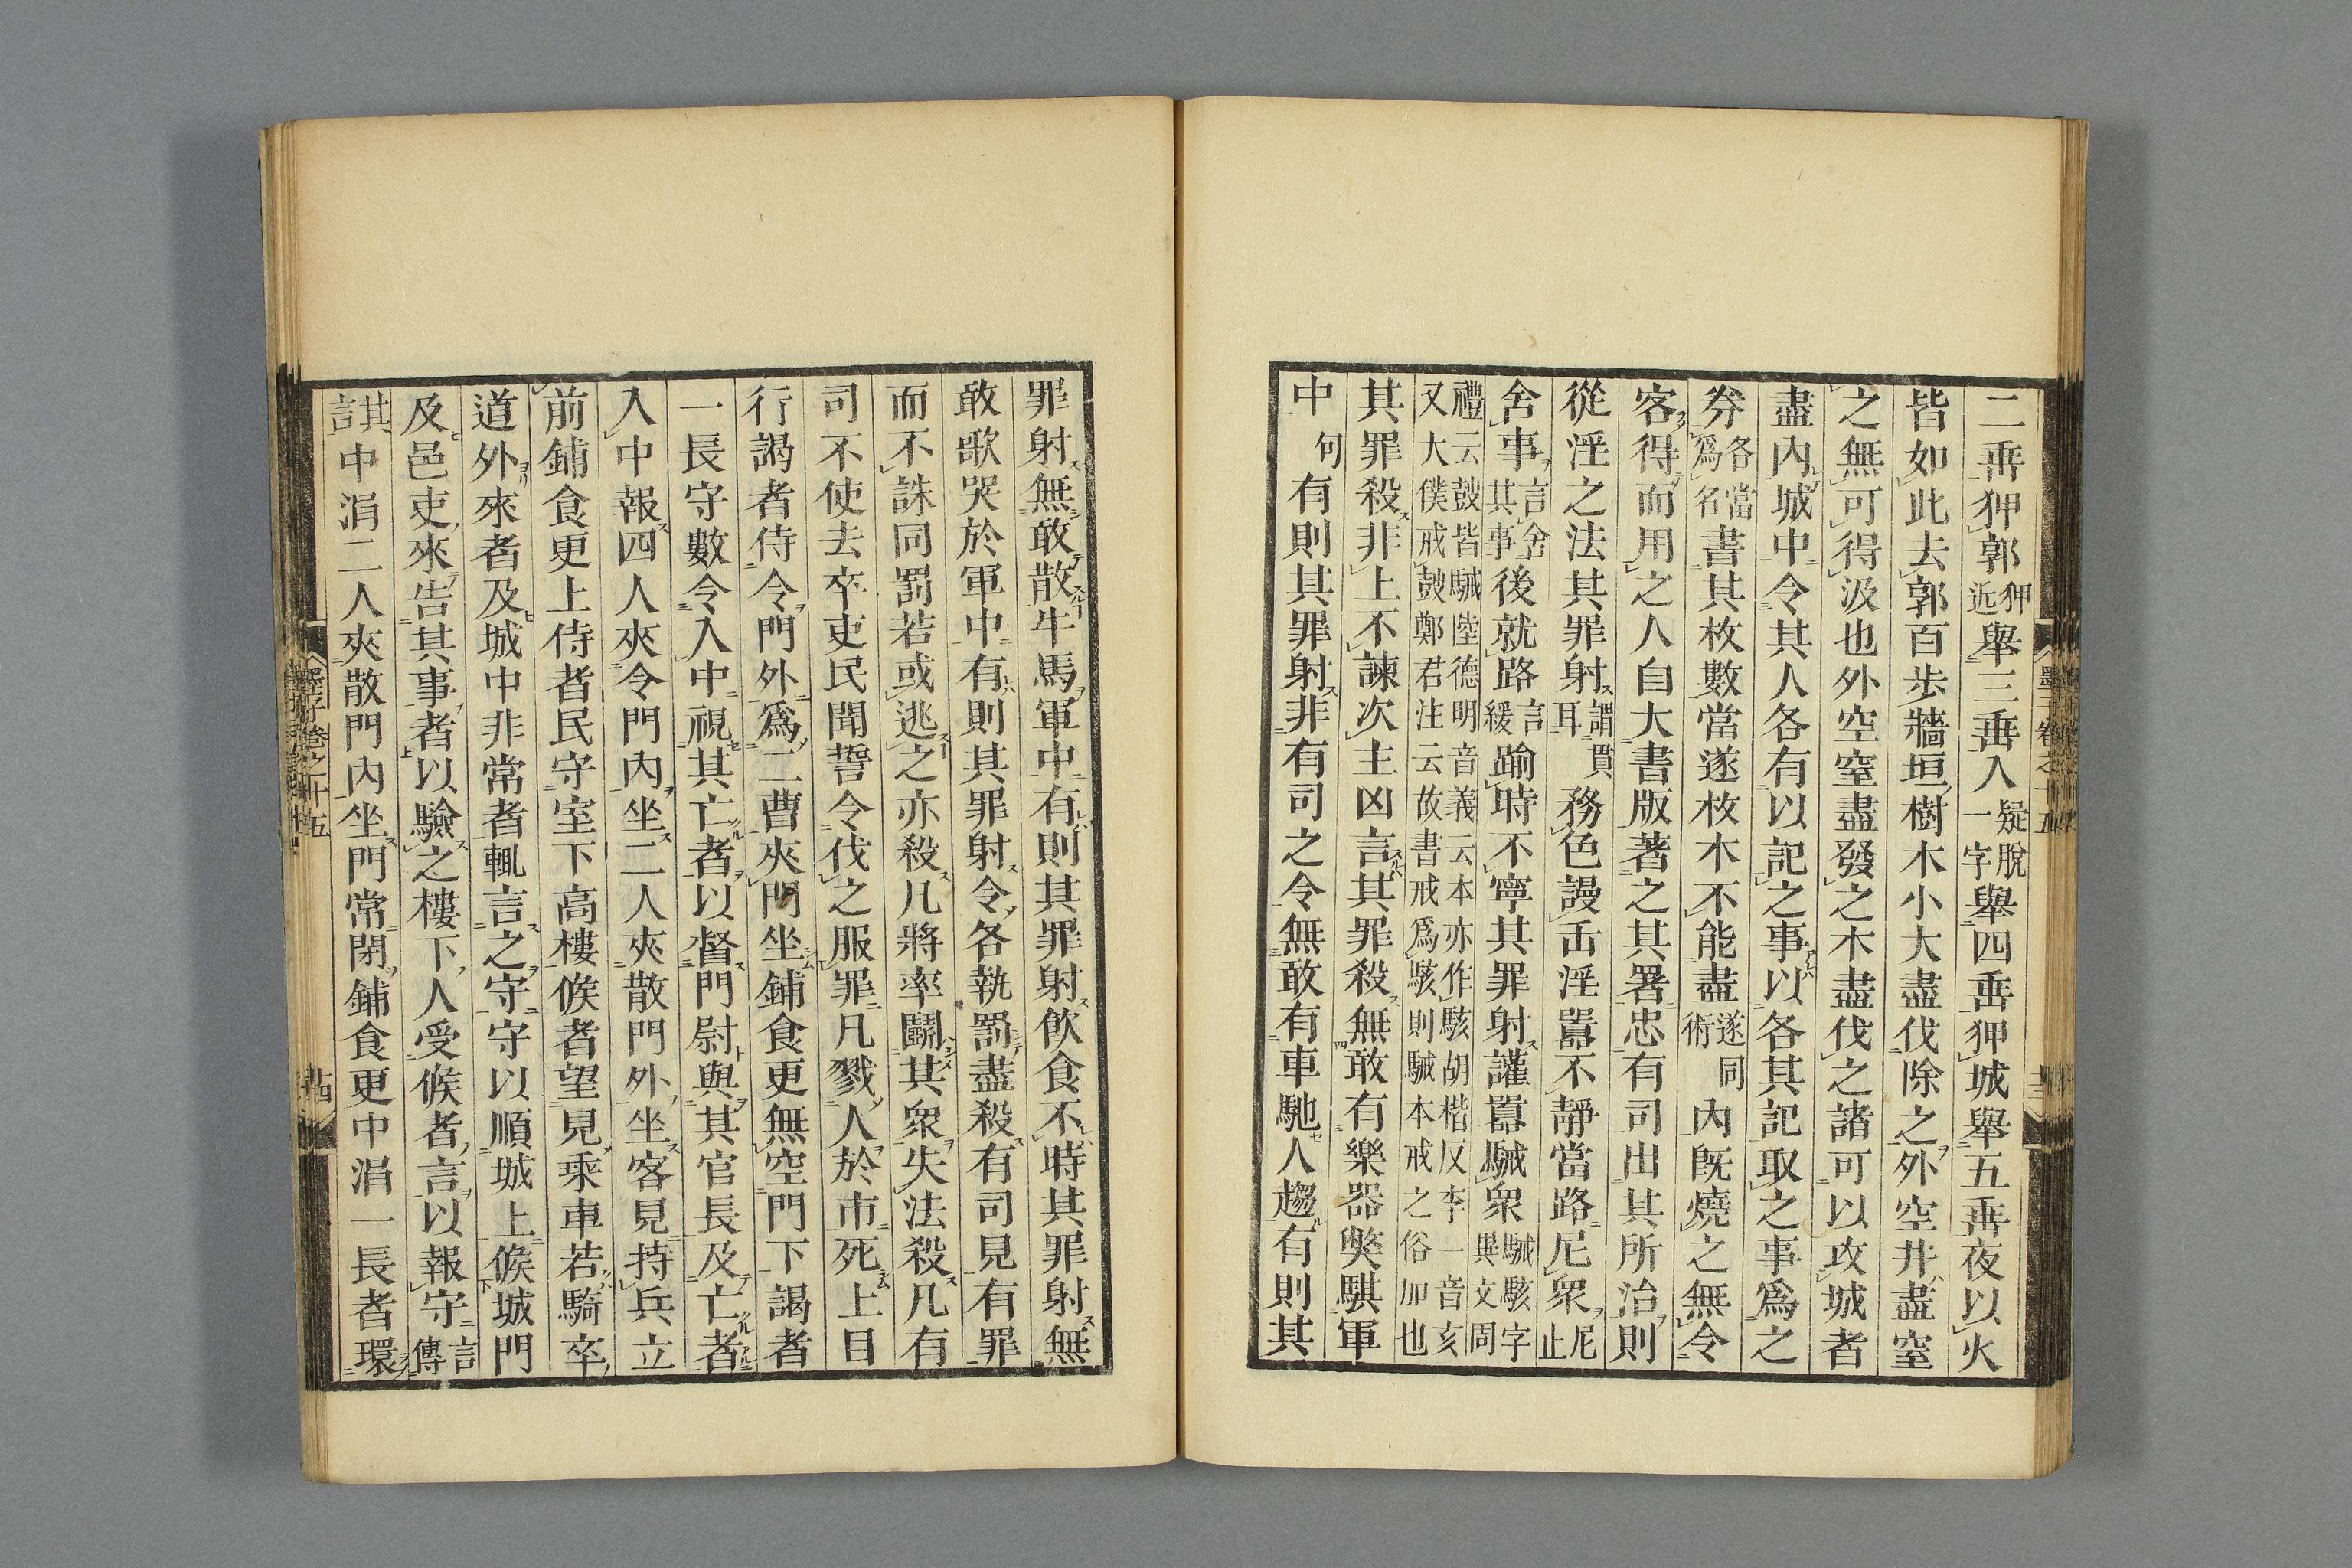 二垂狎郭狎近舉三垂入疑脫一字舉四垂狎城舉五垂夜以火
皆如此去郭百步牆垣樹木小大盡伐除之外空井盡窒
之無可得汲也外空窒盡發之木盡伐之諸可以攻城者
盡內城中令其人各有以記之事以各其記取之事爲之
券各當爲名書其枚數當遂枚木不能盡遂同術內旣燒之無令
客得而用之人自大書版著之其署忠有司出其所治則
從淫之法其罪射謂貫耳務色謾𠙺淫囂不靜當路尼衆尼止
舍事言舍其事後就路言緩踰時不寧其罪射讙囂駴衆駴駭字異文周
禮云鼓皆駴陸德明音義云本亦作駭胡楷反李一音亥
又大僕戒鼓鄭君注云故書戒爲駭則駴本戒之俗加也
其罪殺非上不諫次主凶言其罪殺無敢有樂器獘騏軍
中句有則其罪射非有司之令無敢有車馳人趨有則其
罪射無敢散牛馬軍中有則其罪射飲食不時其罪射無
敢歌哭於軍中有則其罪射令各執罰盡殺有司見有罪
而不誅同罰若或逃之亦殺凡將率鬭其衆失法殺凡有
司不使去卒吏民聞誓令伐之服罪凡戮人於市死上目
行謁者侍令門外爲二曹夾門坐鋪食更無空門下謁者
一長守數令入中視其亡者以督門尉與其官長及亡者
入中報四人夾令門內坐二人夾散門外坐客見持兵立
前鋪食更上侍者民守室下高樓候者望見乘車若騎卒
道外來者及城中非常者輒言之守守以順城上候城門
及邑吏來告其事者以驗之樓下人受候者言以報守言傳
其言中涓二人夾散門內坐門常閉鋪食更中涓一長者環
墨子卷之十五